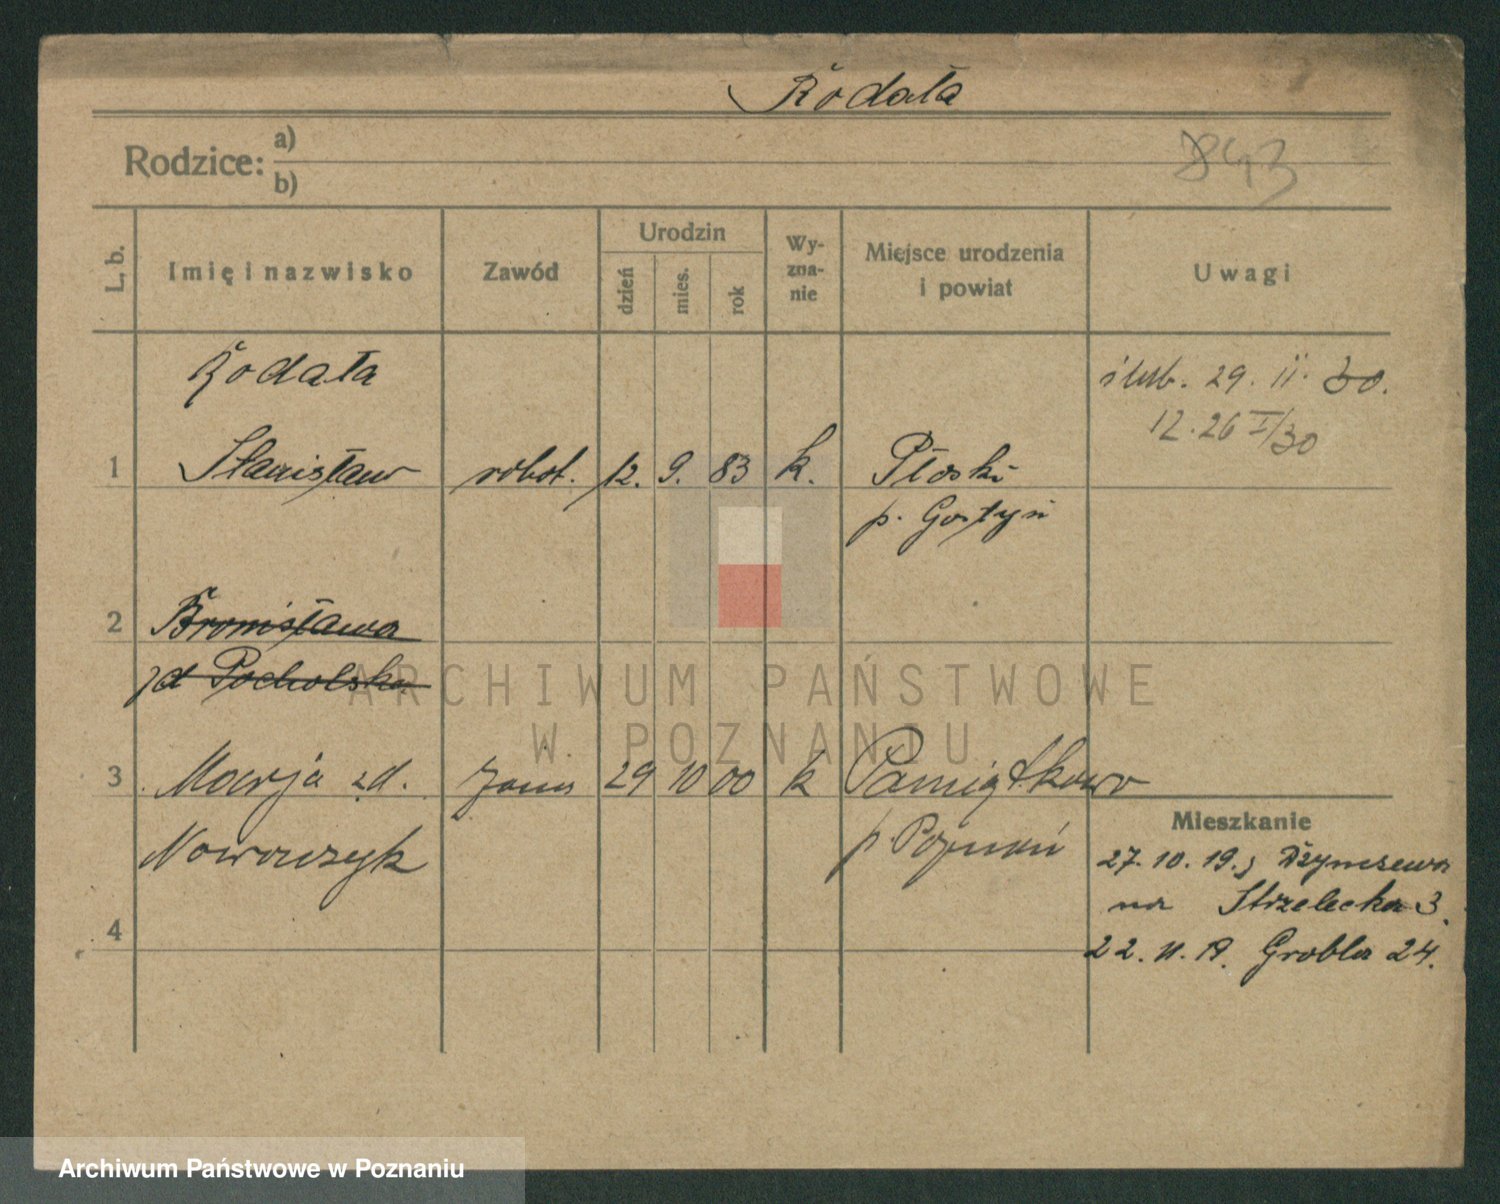 Rodała
Rodzice: a)
b)
843
L. b.
Imię i nazwisko
Zawód
Urodzin
dzień
mies.
rok
Wy-
zna-
nie
Miejsce urodzenia
i powiat
Uwagi
Rodała
ślub. 29. II. 30.
12. 26 I/30
1 Stanisław robot. 12. 9. 83 k. Płoski
p. Gostyń
2 Bronisława
zd Pocholska
3 Marja zd. żona 29 10 00 k Pamiątkowo
Nowaczyk p. Poznań
Mieszkanie
27. 10. 19.
na Strzelecka 3.
4
22. 11. 19. Grobla 24.
ARCHIWUM PAŃSTWOWE
W POZNANIU
Archiwum Państwowe w Poznaniu